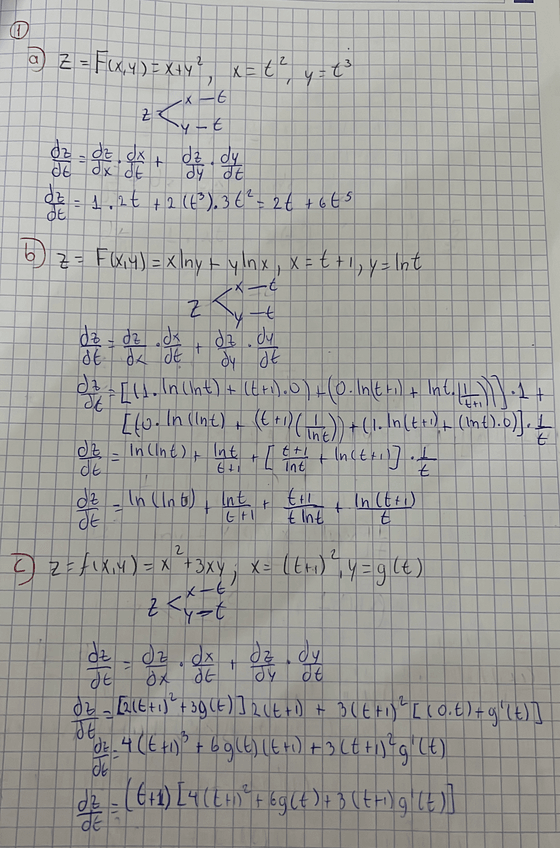 1
a) z = F(x,y) = x+y², x = t², y = t³
z < x − t
y − t
dz/dt = dz/dx · dx/dt + dz/dy · dy/dt
dz/dt = 1 . 2t + 2(t³) . 3t² = 2t + 6t⁵
b) z = F(x,y) = x ln y + y ln x, x = t+1, y = ln t
z < x − t
y − t
dz/dt = dz/dx · dx/dt + dz/dy · dy/dt
dz/dt = [(1. ln(ln t) + (t+1) . 0) + (0. ln(t+1) + ln t . (1/(t+1)))] . 1 +
[(0. ln(ln t) + (t+1)(1/ln t)) + (1. ln(t+1) + (ln t) . 0)] . 1/t
dz/dt = ln(ln t) + ln t/(t+1) + [(t+1)/ln t + ln(t+1)] . 1/t
dz/dt = ln(ln t) + ln t/(t+1) + (t+1)/(t ln t) + ln(t+1)/t
c) z = f(x,y) = x² + 3xy; x = (t+1)², y = g(t)
z < x − t
y − t
dz/dt = dz/dx · dx/dt + dz/dy · dy/dt
dz/dt = [2(t+1)² + 3g(t)] 2(t+1) + 3(t+1)² [(0.t) + g'(t)]
dz/dt = 4(t+1)³ + 6g(t)(t+1) + 3(t+1)² g'(t)
dz/dt = (t+1) [4(t+1)² + 6g(t) + 3(t+1) g'(t)]